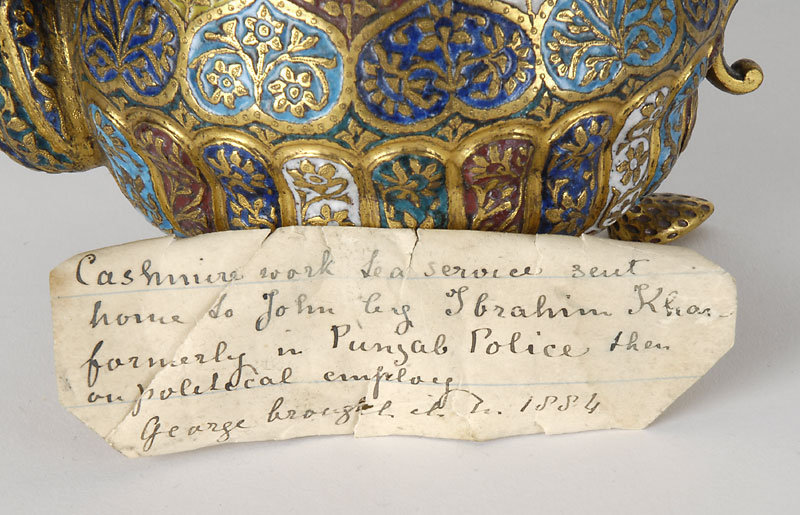 Cashmire work tea service sent
home to John by Ibrahim Khan
formerly in Punjab Police then
on political employ
George brought it h. 1884